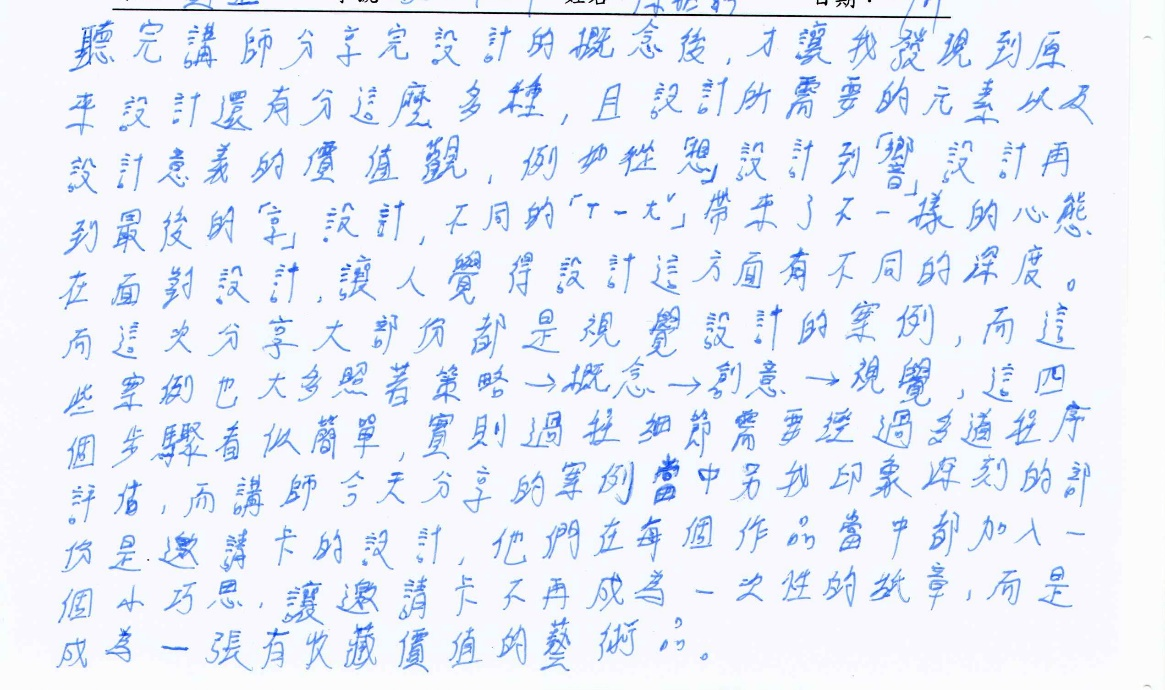 聽完講師分享完設計的概念後,才讓我發現到原
來設計還有分這麼多種,且設計所需要的元素以及
設計意義的價值觀,例如從「想」設計到「響」設計再
到最後的「享」設計,不同的「ㄒㄧㄤˇ」帶來了不一樣的心態
在面對設計,讓人覺得設計這方面有不同的深度。
而這次分享大部份都是視覺設計的案例,而這
些案例也大多照著策略→概念→創意→視覺,這四
個步驟看似簡單,實則過程細節需要經過多道程序
評估,而講師今天分享的案例當中另我印象深刻的部
份是邀請卡的設計,他們在每個作品當中都加入一
個小巧思,讓邀請卡不再成為一次性的紙章,而是
成為一張有收藏價值的藝術品。